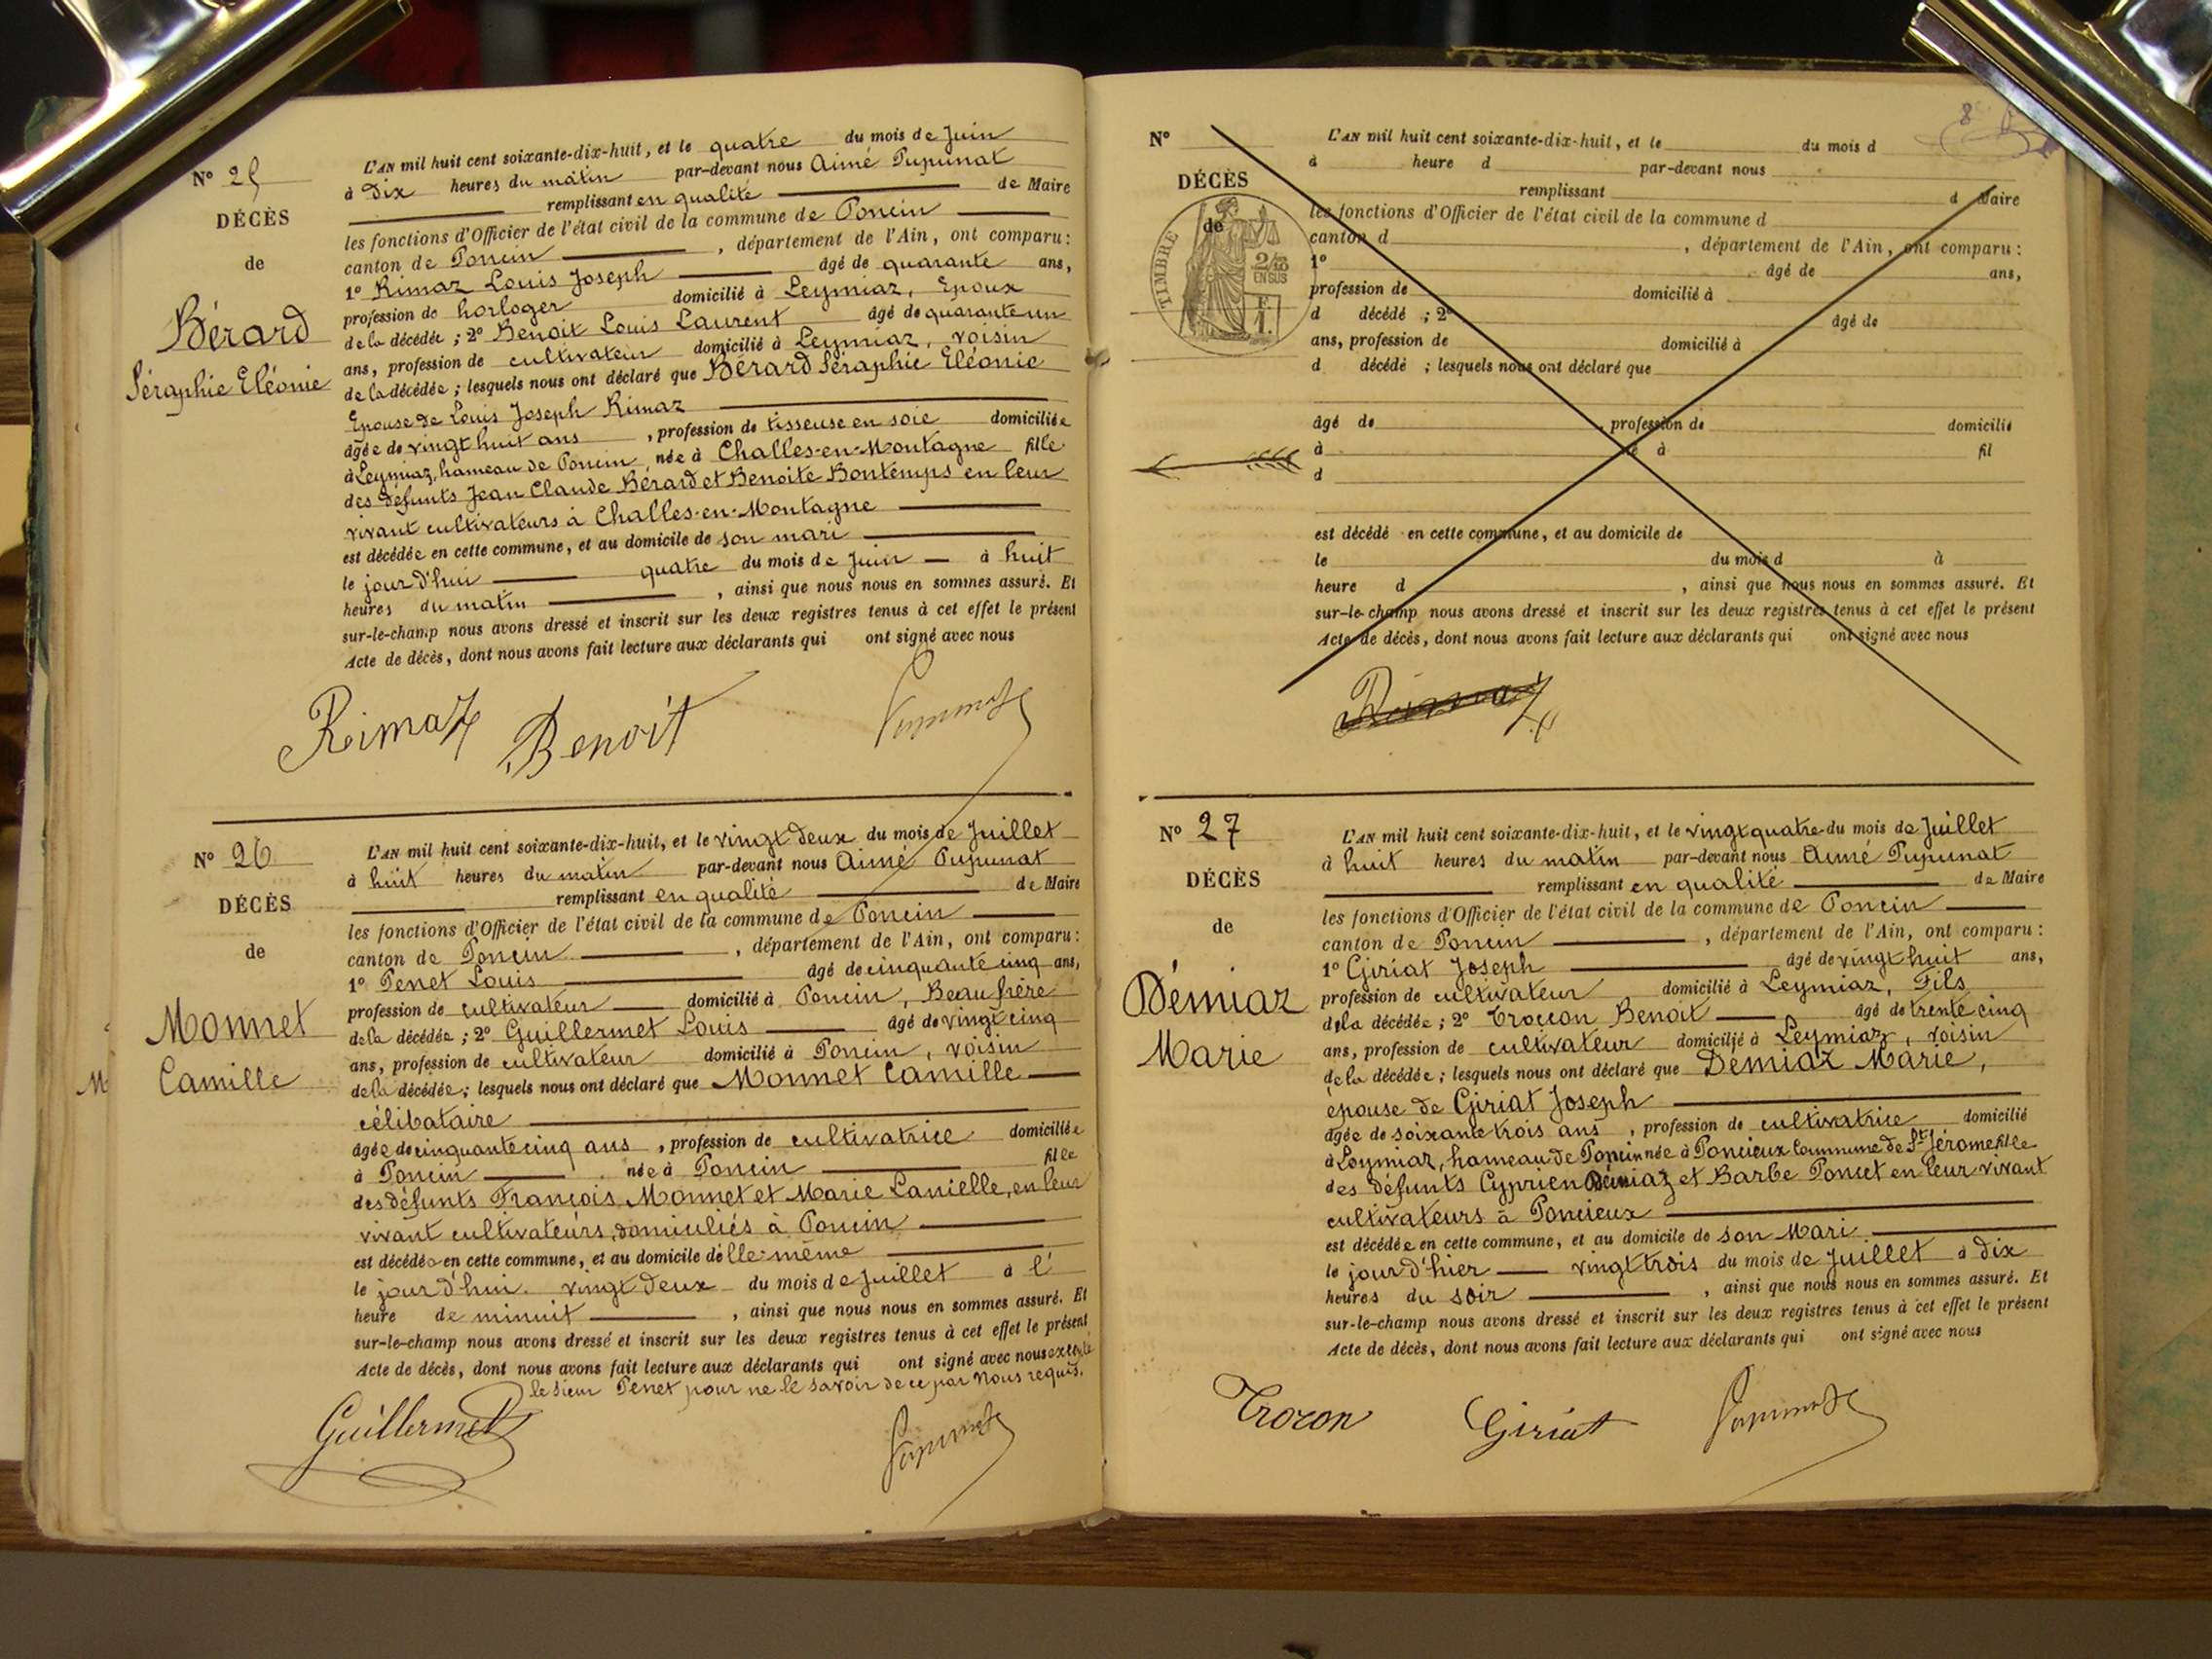 N° 25
DÉCÈS
de
Bérard
Séraphie Eléonie
L'AN mil huit cent soixante-dix-huit, et le quatre du mois de Juin
à Dix heures du matin par-devant nous Aimé Pupunat
remplissant en qualité de Maire
les fonctions d'Officier de l'état civil de la commune de Poncin
canton de Poncin, département de l'Ain, ont comparu:
1° Rimaz Louis Joseph âgé de quarante ans,
profession de horloger domicilié à Leymiaz, Epoux
de la décédée; 2° Benoit Louis Laurent âgé de quarante un
ans, profession de cultivateur domicilié à Leymiaz, voisin
de la décédée; lesquels nous ont déclaré que Bérard Séraphie Eléonie
Epouse de Louis Joseph Rimaz
âgée de vingt huit ans, profession de tisseuse en soie domiciliée
à Leymiaz, hameau de Poncin, née à Challes-en-Montagne fille
des défunts Jean Claude Bérard et Benoite Bontemps en leur
vivant cultivateurs à Challes-en-Montagne
est décédée en cette commune, et au domicile de son mari
le jour d'hui quatre du mois de Juin à huit
heures du matin, ainsi que nous nous en sommes assuré. Et
sur-le-champ nous avons dressé et inscrit sur les deux registres tenus à cet effet le présent
Acte de décès, dont nous avons fait lecture aux déclarants qui ont signé avec nous
Rimaz Benoit Pupunat
N° 26
DÉCÈS
de
Monnet
Camille
M
L'AN mil huit cent soixante-dix-huit, et le vingt deux du mois de Juillet
à huit heures du matin par-devant nous Aimé Pupunat
remplissant en qualité de Maire
les fonctions d'Officier de l'état civil de la commune de Poncin
canton de Poncin, département de l'Ain, ont comparu:
1° Penet Louis âgé de cinquante cinq ans,
profession de cultivateur domicilié à Poncin, Beau frère
de la décédée; 2° Guillermet Louis âgé de vingt cinq
ans, profession de cultivateur domicilié à Poncin, voisin
de la décédée; lesquels nous ont déclaré que Monnet Camille
célibataire
âgée de cinquante cinq ans, profession de cultivatrice domiciliée
à Poncin née à Poncin fille
des défunts François Monnet et Marie Lanielle, en leur
vivant cultivateurs, domiciliés à Poncin
est décédée en cette commune, et au domicile d'elle-même
le jour d'hui vingt deux du mois de Juillet à l'
heure de minuit, ainsi que nous nous en sommes assuré. Et
sur-le-champ nous avons dressé et inscrit sur les deux registres tenus à cet effet le présent
Acte de décès, dont nous avons fait lecture aux déclarants qui ont signé avec nous excepté
le sieur Penet pour ne le savoir de ce par nous requis.
Guillermet Pupunat
8
N°
DÉCÈS
de
TIMBRE
2/10
EN SUS
F.
1.
L'AN mil huit cent soixante-dix-huit, et le du mois d
à heure d par-devant nous
remplissant d Maire
les fonctions d'Officier de l'état civil de la commune d
canton d, département de l'Ain, ont comparu:
1° âgé de ans,
profession de domicilié à
d décédé; 2° âgé de
ans, profession de domicilié à
d décédé; lesquels nous ont déclaré que
âgé de, profession de domicilié
à né à fil
d
est décédé en cette commune, et au domicile de
le du mois d à
heure d, ainsi que nous nous en sommes assuré. Et
sur-le-champ nous avons dressé et inscrit sur les deux registres tenus à cet effet le présent
Acte de décès, dont nous avons fait lecture aux déclarants qui ont signé avec nous
Rimaz
N° 27
DÉCÈS
de
Démiaz
Marie
L'AN mil huit cent soixante-dix-huit, et le vingt quatre du mois de Juillet
à huit heures du matin par-devant nous Aimé Pupunat
remplissant en qualité de Maire
les fonctions d'Officier de l'état civil de la commune de Poncin
canton de Poncin, département de l'Ain, ont comparu:
1° Giriat Joseph âgé de vingt huit ans,
profession de cultivateur domicilié à Leymiaz, Fils
de la décédée; 2° Trocon Benoit âgé de trente cinq
ans, profession de cultivateur domicilié à Leymiaz, voisin
de la décédée; lesquels nous ont déclaré que Démiaz Marie,
épouse de Giriat Joseph
âgée de soixante trois ans, profession de cultivatrice domicilié
à Leymiaz, hameau de Poncin née à Poncieux Commune de St Jérome fille
des défunts Cyprien Démiaz et Barbe Poncet en leur vivant
cultivateurs à Poncieux
est décédée en cette commune, et au domicile de son Mari
le jour d'hier vingt trois du mois de Juillet à dix
heures du soir, ainsi que nous nous en sommes assuré. Et
sur-le-champ nous avons dressé et inscrit sur les deux registres tenus à cet effet le présent
Acte de décès, dont nous avons fait lecture aux déclarants qui ont signé avec nous
Trocon Giriat Pupunat